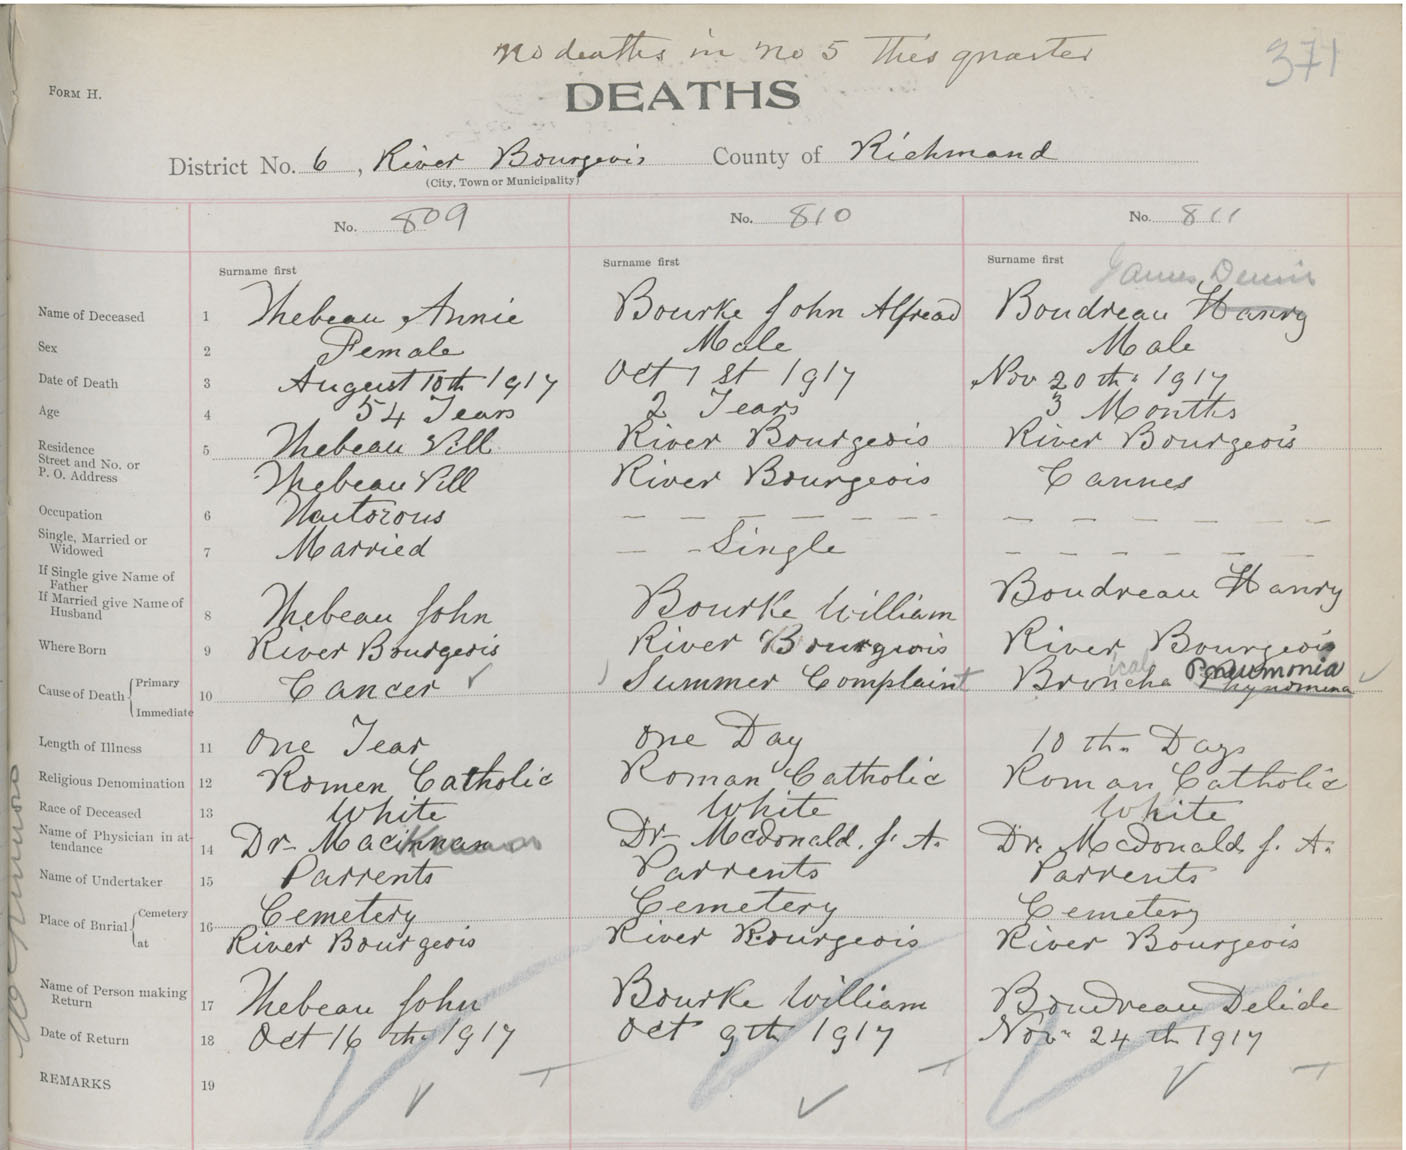 No deaths in No 5 This quarter
371
FORM H.
DEATHS
District No. 6, River Bourgeois County of Richmond
(City, Town or Municipality)
No. 809 No. 810 No. 811
Surname first Surname first Surname first
James Dennis
Name of Deceased 1 Thebeau Annie Bourke John Alfread Boudreau Hanry
Sex 2 Female Male Male
Date of Death 3 August 10th 1917 Oct 1st 1917 Nov 20th 1917
Age 4 54 Years 2 Years 3 Months
Residence
Street and No. or 5 Thebeau Vill River Bourgeois River Bourgeois
P. O. Address Thebeau Vill River Bourgeois Cannes
Occupation 6 — — — — — — — — — — — —
Single, Married or
Widowed 7 Married — — Single — — — — — —
If Single give Name of
Father Boudreau Hanry
If Married give Name of
Husband 8 Thebeau John Bourke William
Where Born 9 River Bourgeois River Bourgeois River Bourgeois
Cause of Death { Primary
Immediate 10 Cancer Summer Complaint Broncha ical Pneumonia
Length of Illness 11 One Year One Day 10 th. Days
Religious Denomination 12 Romen Catholic Roman Catholic Roman Catholic
Race of Deceased 13 White White White
Name of Physician in at-
tendance 14 Dr- Macinnan Dr- McDonald, J. A. Dr. McDonald J. A.
Name of Undertaker 15 Parrents Parrents Parrents
Place of Burial { Cemetery 16 Cemetery Cemetery Cemetery
at River Bourgeois River Bourgeois River Bourgeois
Name of Person making
Return 17 Thebeau John Bourke William Boudreau Delide
Date of Return 18 Oct 16 th. 1917 Oct 9th 1917 Nov. 24 th 1917
REMARKS 19